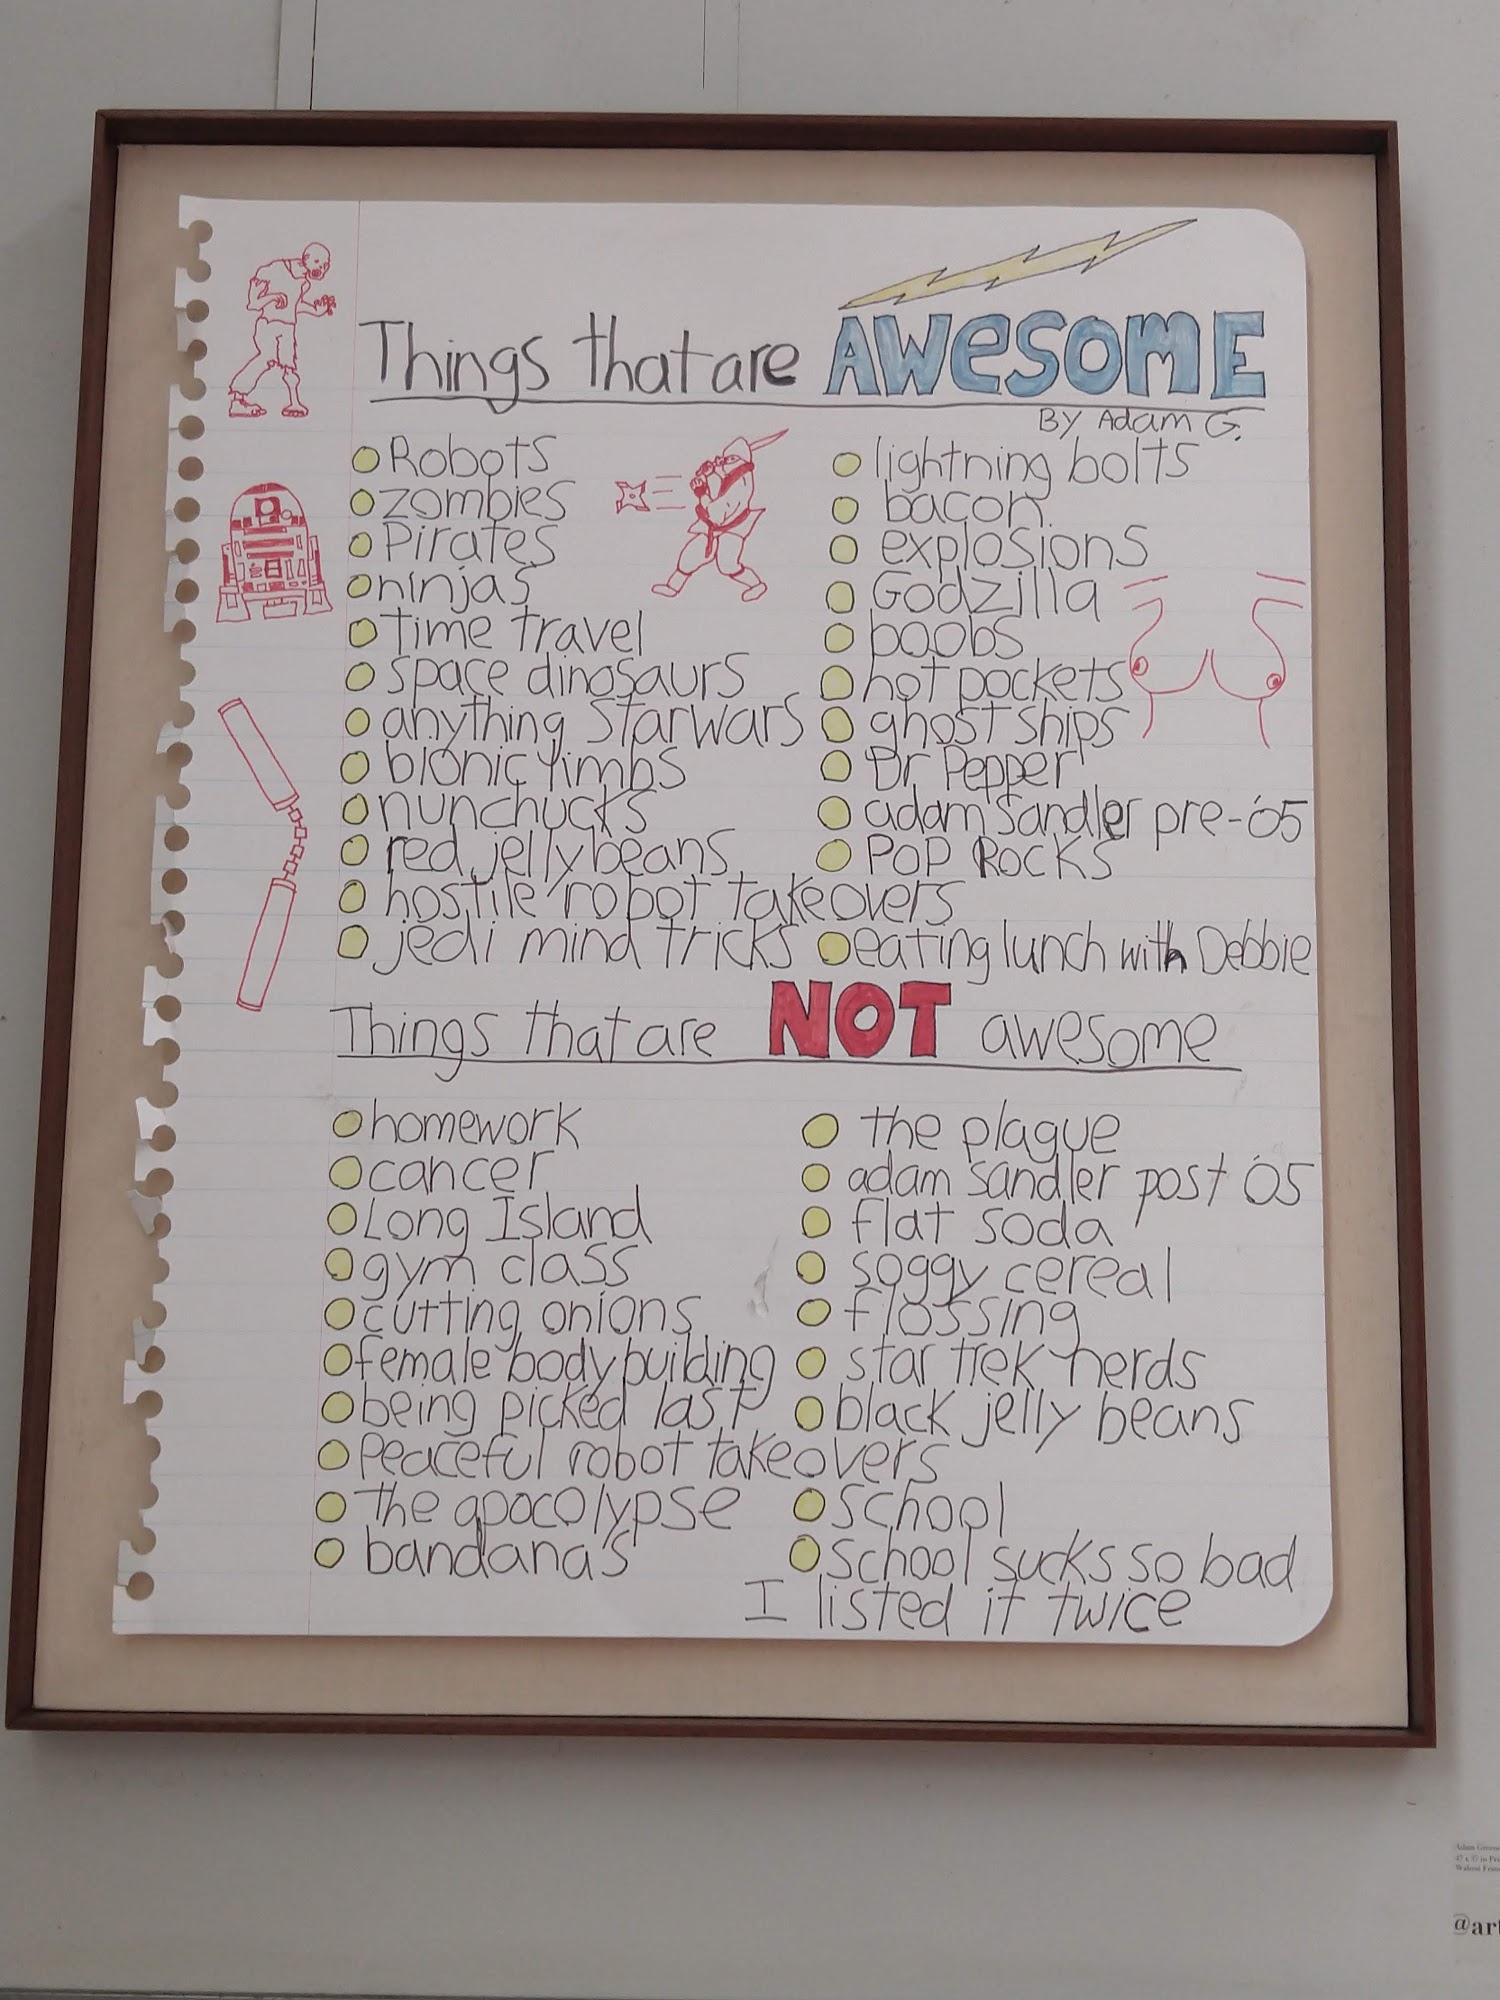 Things that are AWESOME
By Adam G.
Robots
zombies
Pirates
ninjas
time travel
space dinosaurs
anything starwars
bionic limbs
nunchucks
red jelly beans
hostile robot takeovers
jedi mind tricks
lightning bolts
bacon
explosions
Godzilla
boobs
hot pockets
ghost ships
Dr Pepper
adam sandler pre-'05
POP ROCKS
eating lunch with Debbie
Things that are NOT awesome
homework
cancer
Long Island
gym class
cutting onions
female body building
being picked last
peaceful robot takeovers
the apocolypse
bandanas
the plague
adam sandler post '05
flat soda
soggy cereal
flossing
star trek nerds
black jelly beans
school
school sucks so bad
I listed it twice
@art